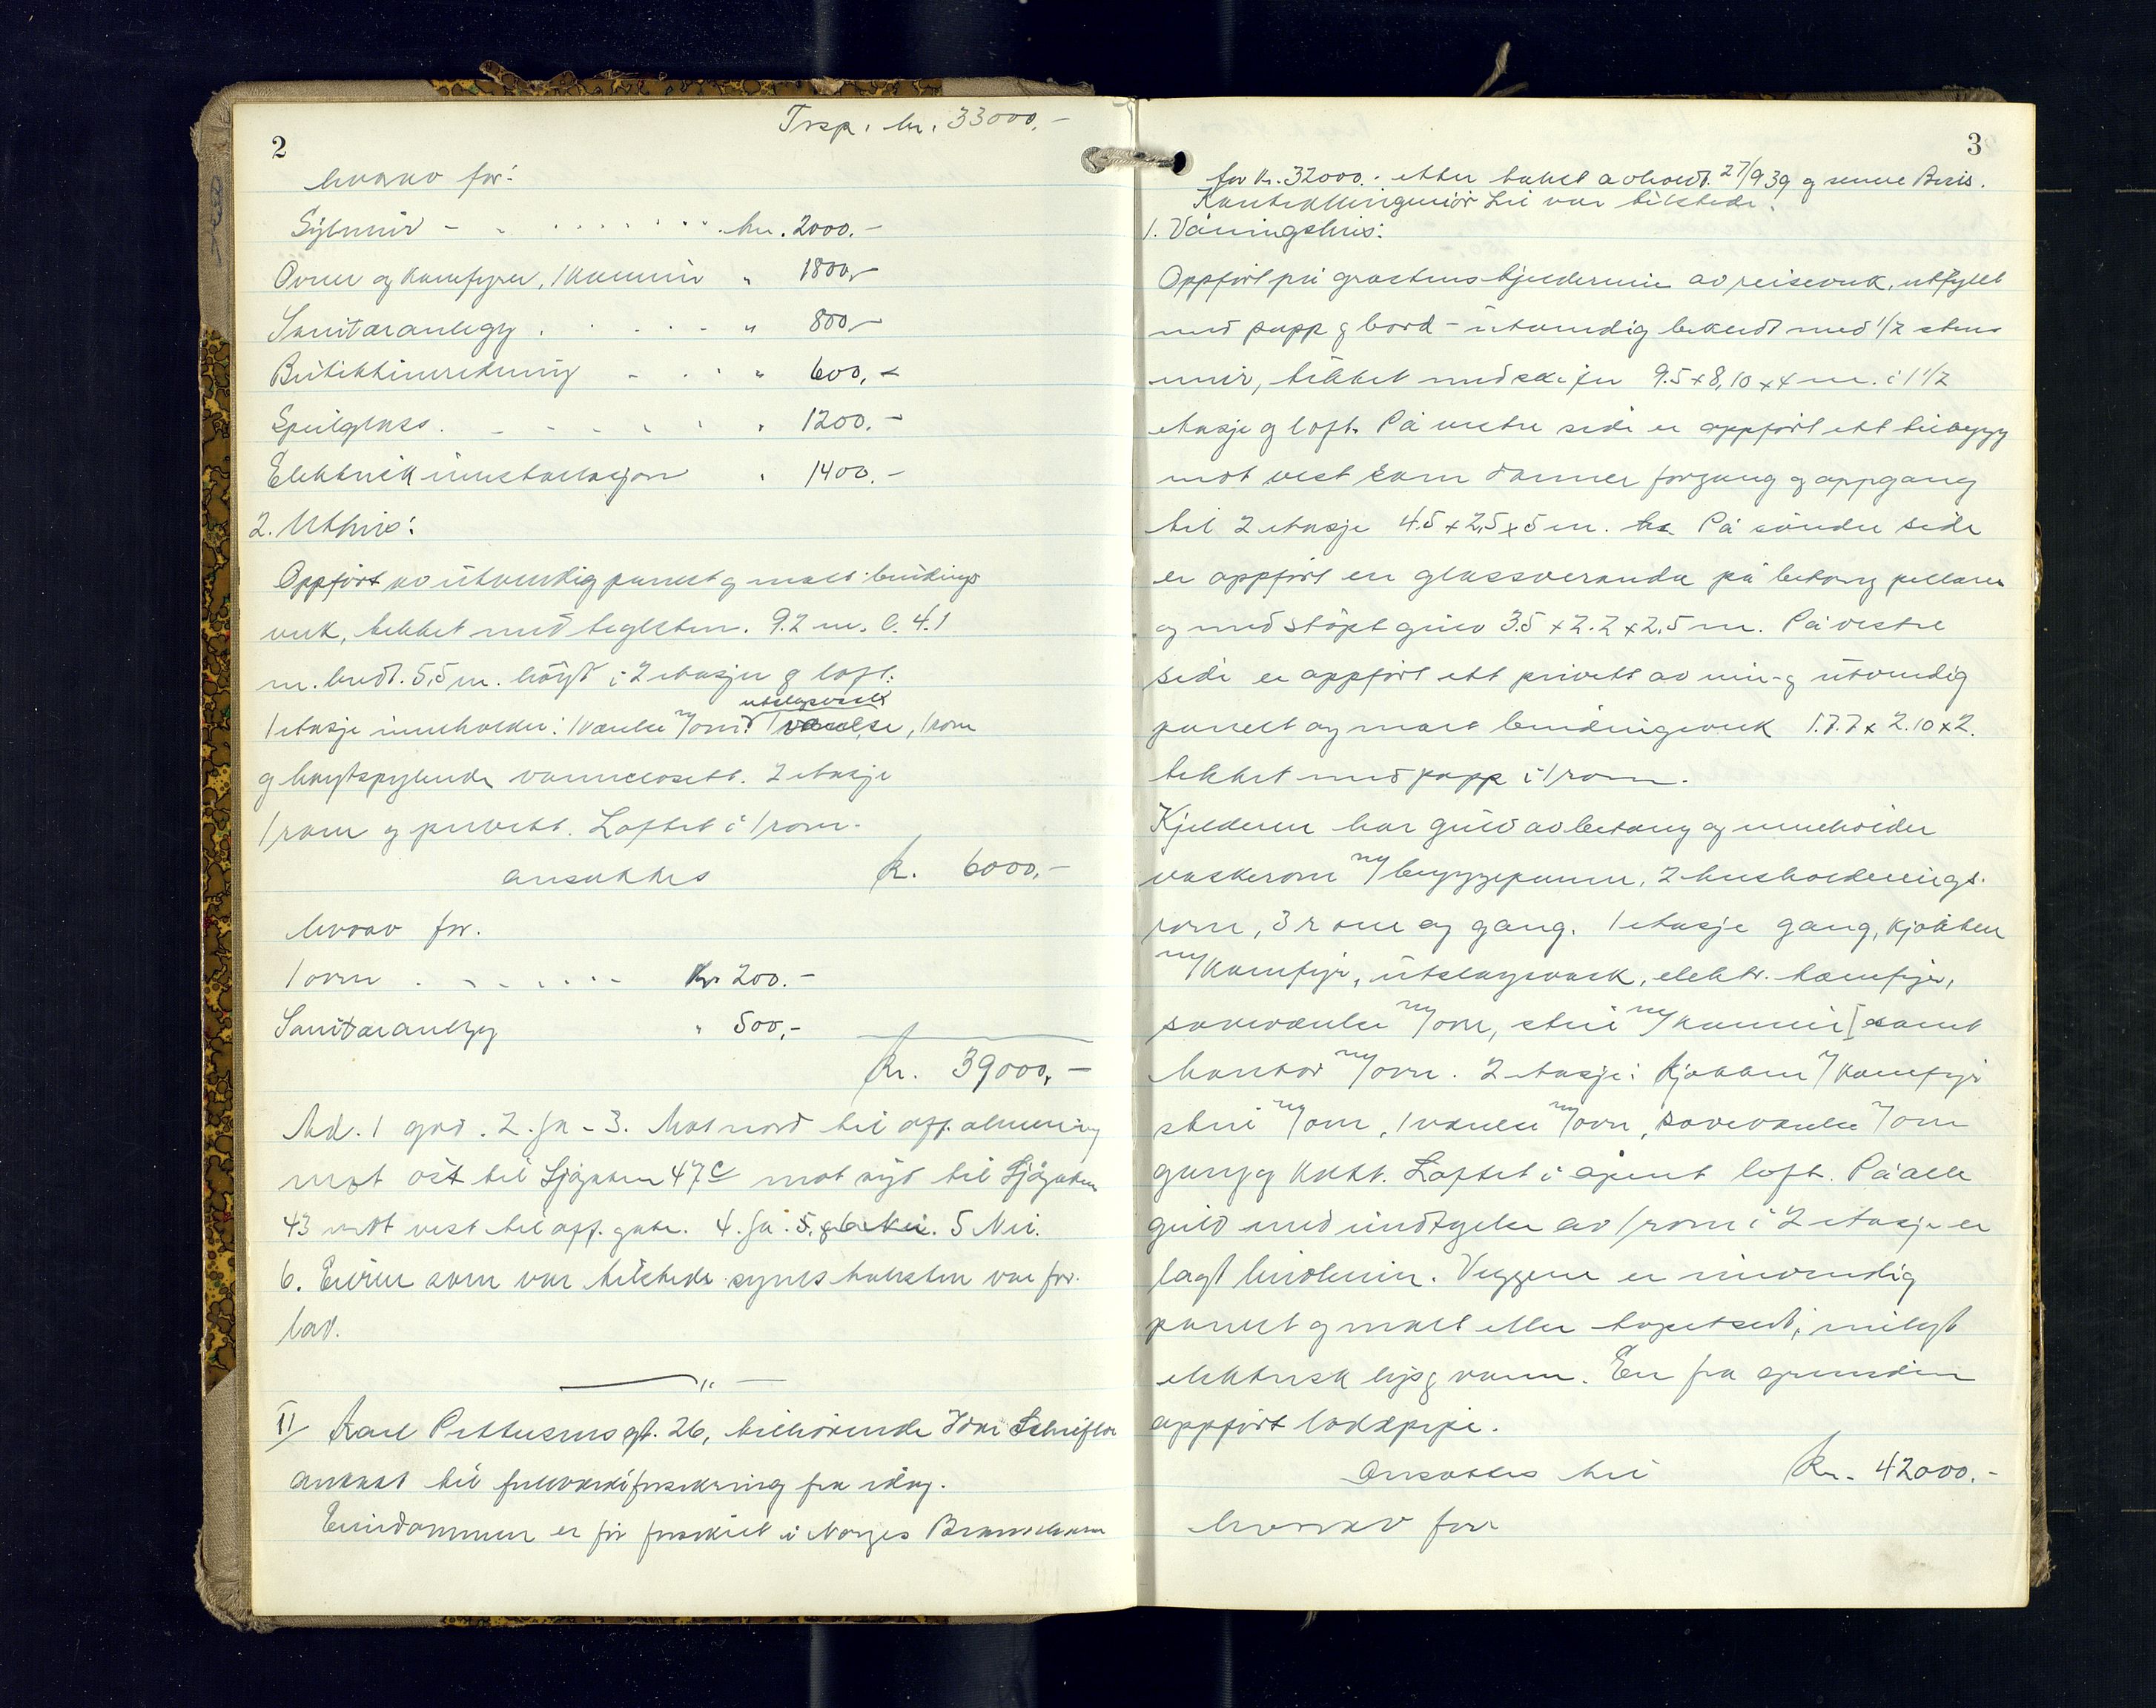 Trsp. kr. 33000.-
2
hvorav for:
Sylmur - - . . . . . . kr. 2000.-
Ovner og komfyrer, 1 kamin " 1800,-
Sanitæranlegg . . . . - " 800,-
Butikkinnredning - . . " 600,-
Speilglass. - - - . . " 1200.-
Elektrisk innstallasjon " 1400.-
2. Uthus:
Oppført av utvendig panelt og malt bindings
verk, tekket med teglsten. 9.2 m. l. 4.1
m. bredt. 5,5 m. høyt i 2 etasjer og loft.
utslagsvask
1 etasje inneholder: 1 værelse m/ovn, 1 rom
og høytspylende vannclosett. 2 etasje
1 rom og privett. Loftet i 1 rom.
ansattes Kr. 6000.-
hvorav for.
1 ovn . - - . . - - Kr. 200.-
Sanitæranlegg " 500,-
Kr. 39000,-
Ad. 1 god. 2. Ja - 3. Mot nord til off. almenning
mot øst til Sjøgaten 47c mot syd til Sjøgaten
43 mot vest til off. gate. 4. Ja. 5. 5 Nei.
6. Eieren som var tilstede synes taksten var for
lav.
II/ Karl Pettersens gt. 26, tilhørende
ansatt til fullverdiforsikring fra idag.
Eiendommen er før forsikret i Norges Brannkasse
3
for kr. 32000.- etter takst avholdt 27/9 39 og senere Besis.
Kontrollingeniør Lie var tilstede.
1. Våningshus:
Oppført på gråstens kjeldermur av reisverk, utfyllt
med papp og bord - utvendig bekledt med 1/2 stens
mur, tekket med skifer 9.5 x 8,10 x 4 m. i 1 1/2
etasje og loft. På vestre side er oppført ett tilbygg
mot vest som danner forgang og oppgang
til 2 etasje 4.5 x 2,5 x 5 m. På søndre side
er oppført en glassveranda på betong pillarer
og med støpt gulv 3.5 x 2.2 x 2.5 m. På vestre
side er oppført ett privett av mur- og utvendig
panelt og malt bindingsverk 1.7.7 x 2.10 x 2.
tekket med papp i 1 rom.
Kjelderen har gulv av betong og inneholder
vaskerom m/bryggepanne, 2 husholdnings-
rom, 3 rom og gang. 1 etasje gang, kjøkken
m/komfyr, utslagsvask, elektr. komfyr,
soveværelse m/ovn, stue m/kamin samt
kontor m/ovn. 2 etasje: Kjøkken m/komfyr
stue m/ovn, 1 værelse m/ovn, soveværelse m/ovn
gang og kott. Loftet i åpent loft. På alle
gulv med undtagelse av 1 rom i 2 etasje er
lagt linoleum. Veggene er innvendig
panelt og malt eller tapetsert, innlagt
elektrisk lys og vann. En fra grunden
oppført loddpipe.
Ansattes til Kr. 42000.-
hvorav for